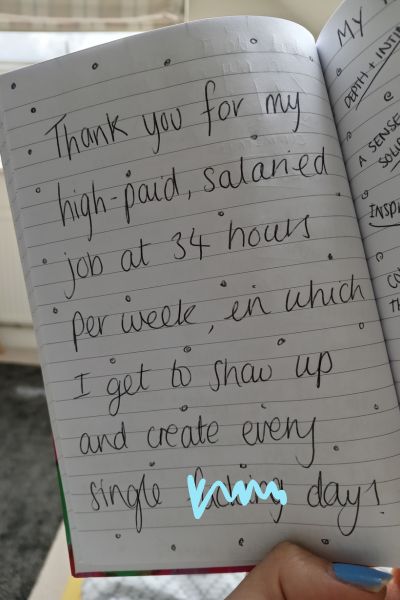 Thank you for my
high-paid, salaried
job at 34 hours
per week, in which
I get to show up
and create every
single day!
MY
DEPTH + INTI
A SENSE
INSPI